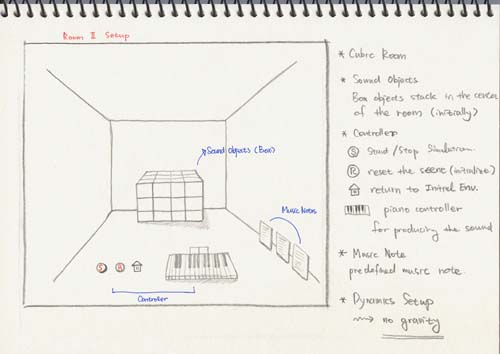 Room II Setup
Sound Objects (Box)
Music Notes
S R
Controller
* Cubic Room
* Sound Objects
Box objects stack in the center
of the room (initially)
* Controller
S Start/Stop Simulation.
R reset the scene (initialize)
return to Initial Env.
piano controller
for producing the sound
* Music Note
predefined music note.
* Dynamics Setup
no gravity